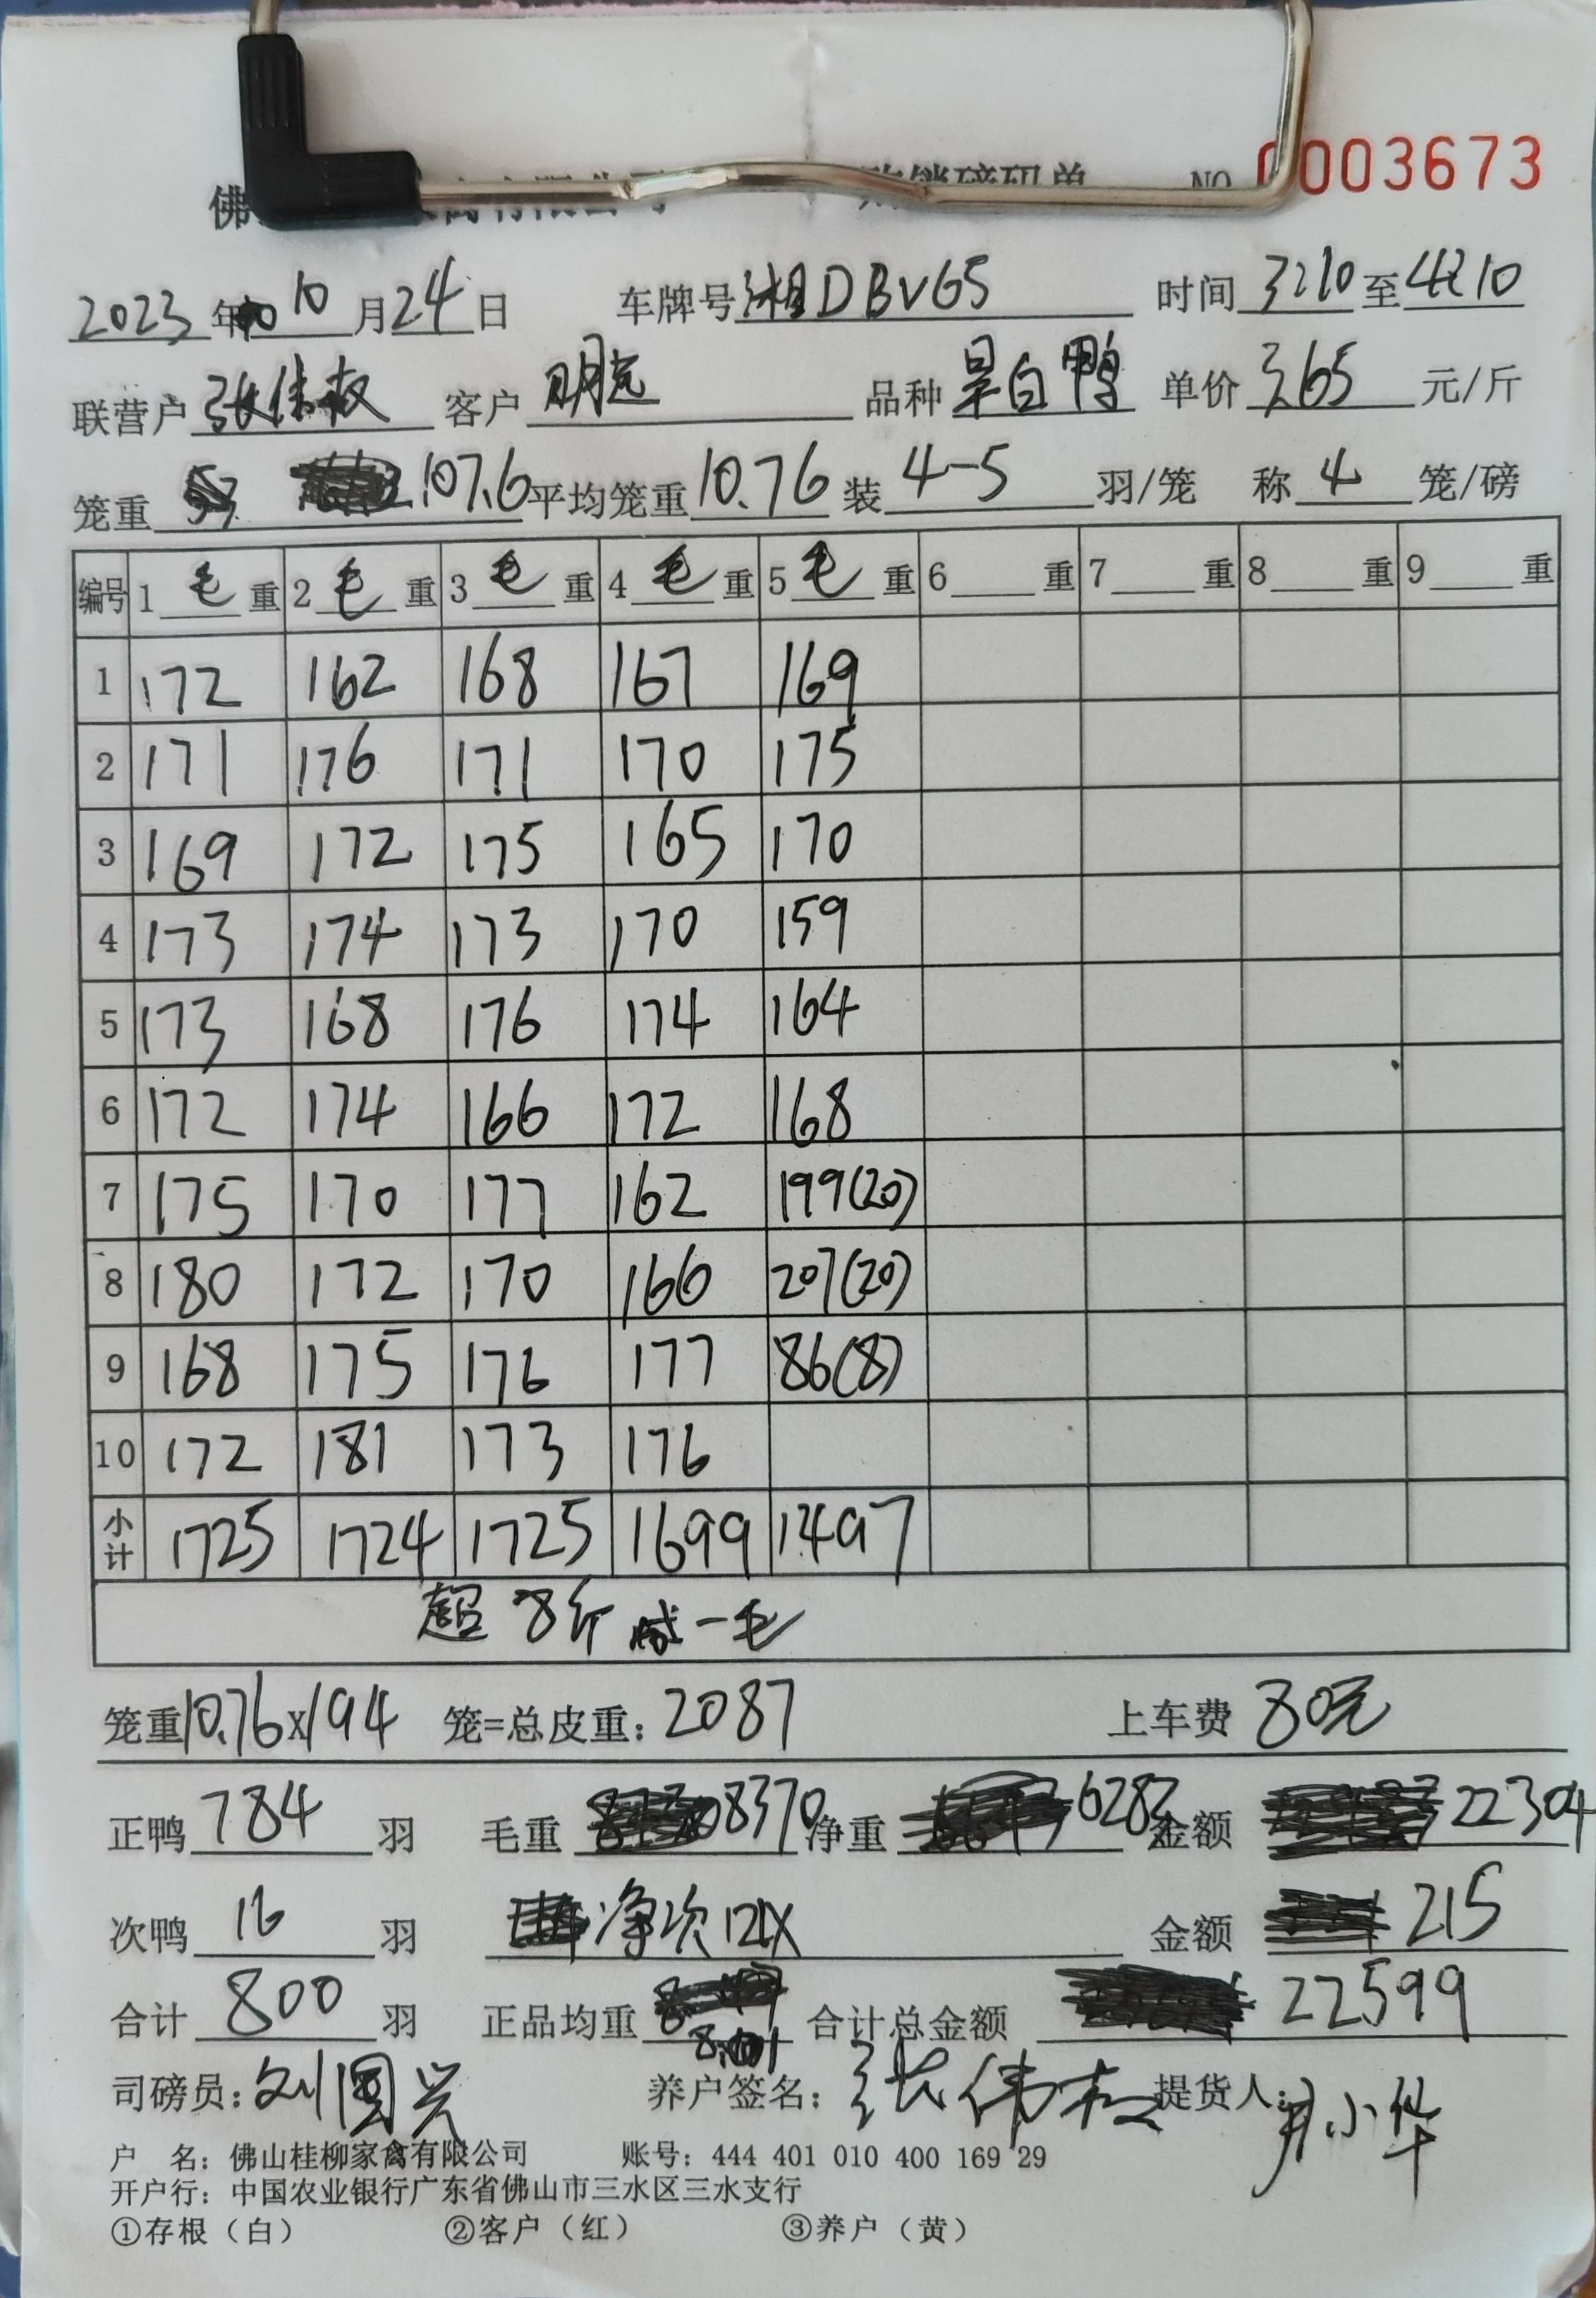 佛 NO 0003673
2023年10月24日 车牌号湘DBV65 时间3:10至4:10
联营户张伟权 客户明远 品种旱白鸭 单价3.65元/斤
笼重107.6平均笼重10.76装4-5羽/笼 称4笼/磅
编号 1毛重 2毛重 3毛重 4毛重 5毛重 6重 7重 8重 9重
1 172 162 168 167 169
2 171 176 171 170 175
3 169 172 175 165 170
4 173 174 173 170 159
5 173 168 176 174 164
6 172 174 166 172 168
7 175 170 177 162 199(20)
8 180 172 170 166 207(20)
9 168 175 176 177 86(8)
10 172 181 173 176
小计 1725 1724 1725 1699 1497
超8斤减一毛
笼重10.76x194 笼=总皮重:2087 上车费 80元
正鸭784羽 毛重8370净重6283金额22304
次鸭16羽 净次121X 金额215
合计800羽 正品均重 合计总金额22599
司磅员:刘国兴 养户签名:张伟权 提货人:小华
户 名:佛山桂柳家禽有限公司 账号:444 401 010 400 169 29
开户行:中国农业银行广东省佛山市三水区三水支行
①存根(白) ②客户(红) ③养户(黄)